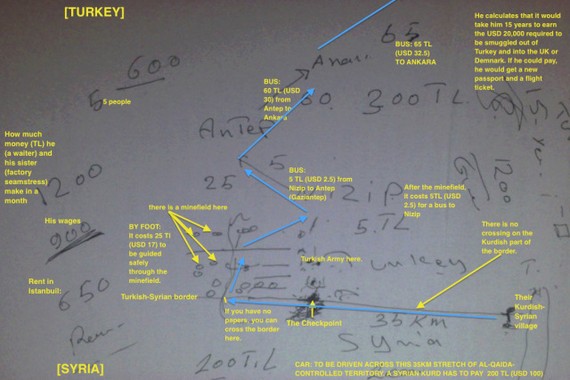 [TURKEY]
He calculates that it would
take him 15 years to earn
the USD 20,000 required to
be smuggled out of
Turkey and into the UK or
Demnark. If he could pay,
he would get a new
passport and a flight
ticket.
65
BUS: 65 TL
(USD 32.5)
TO ANKARA
600
5 5 people
BUS:
60 TL (USD
30) from
Antep to
Ankara
60.
300 TL
Antep
How much
money (TL) he
(a waiter) and
his sister
(factory
seamstress)
make in a
month
1200
5
25
BUS:
5 TL (USD 2.5) from
Nizip to Antep
(Gaziantep)
After the minefield,
it costs 5TL (USD
2.5) for a bus to
Nizip
5.TL
there is a minefield here
His wages
900
BY FOOT:
It costs 25 Tl
(USD 17) to
be guided
safely
through the
minefield.
There is no
crossing on the
Kurdish part of
the border.
Turkish Army here.
Rent in
Istanbuil:
650
Turkish-Syrian border
If you have no
papers, you can
cross the border
here.
The Checkpoint
35 KM
Syria
Their
Kurdish-
Syrian
village
200 TL
[SYRIA]
CAR: TO BE DRIVEN ACROSS THIS 35KM STRETCH OF AL-QAIDA-
CONTROLLED TERRITORY, A SYRIAN KURD HAS TO PAY 200 TL (USD 100)